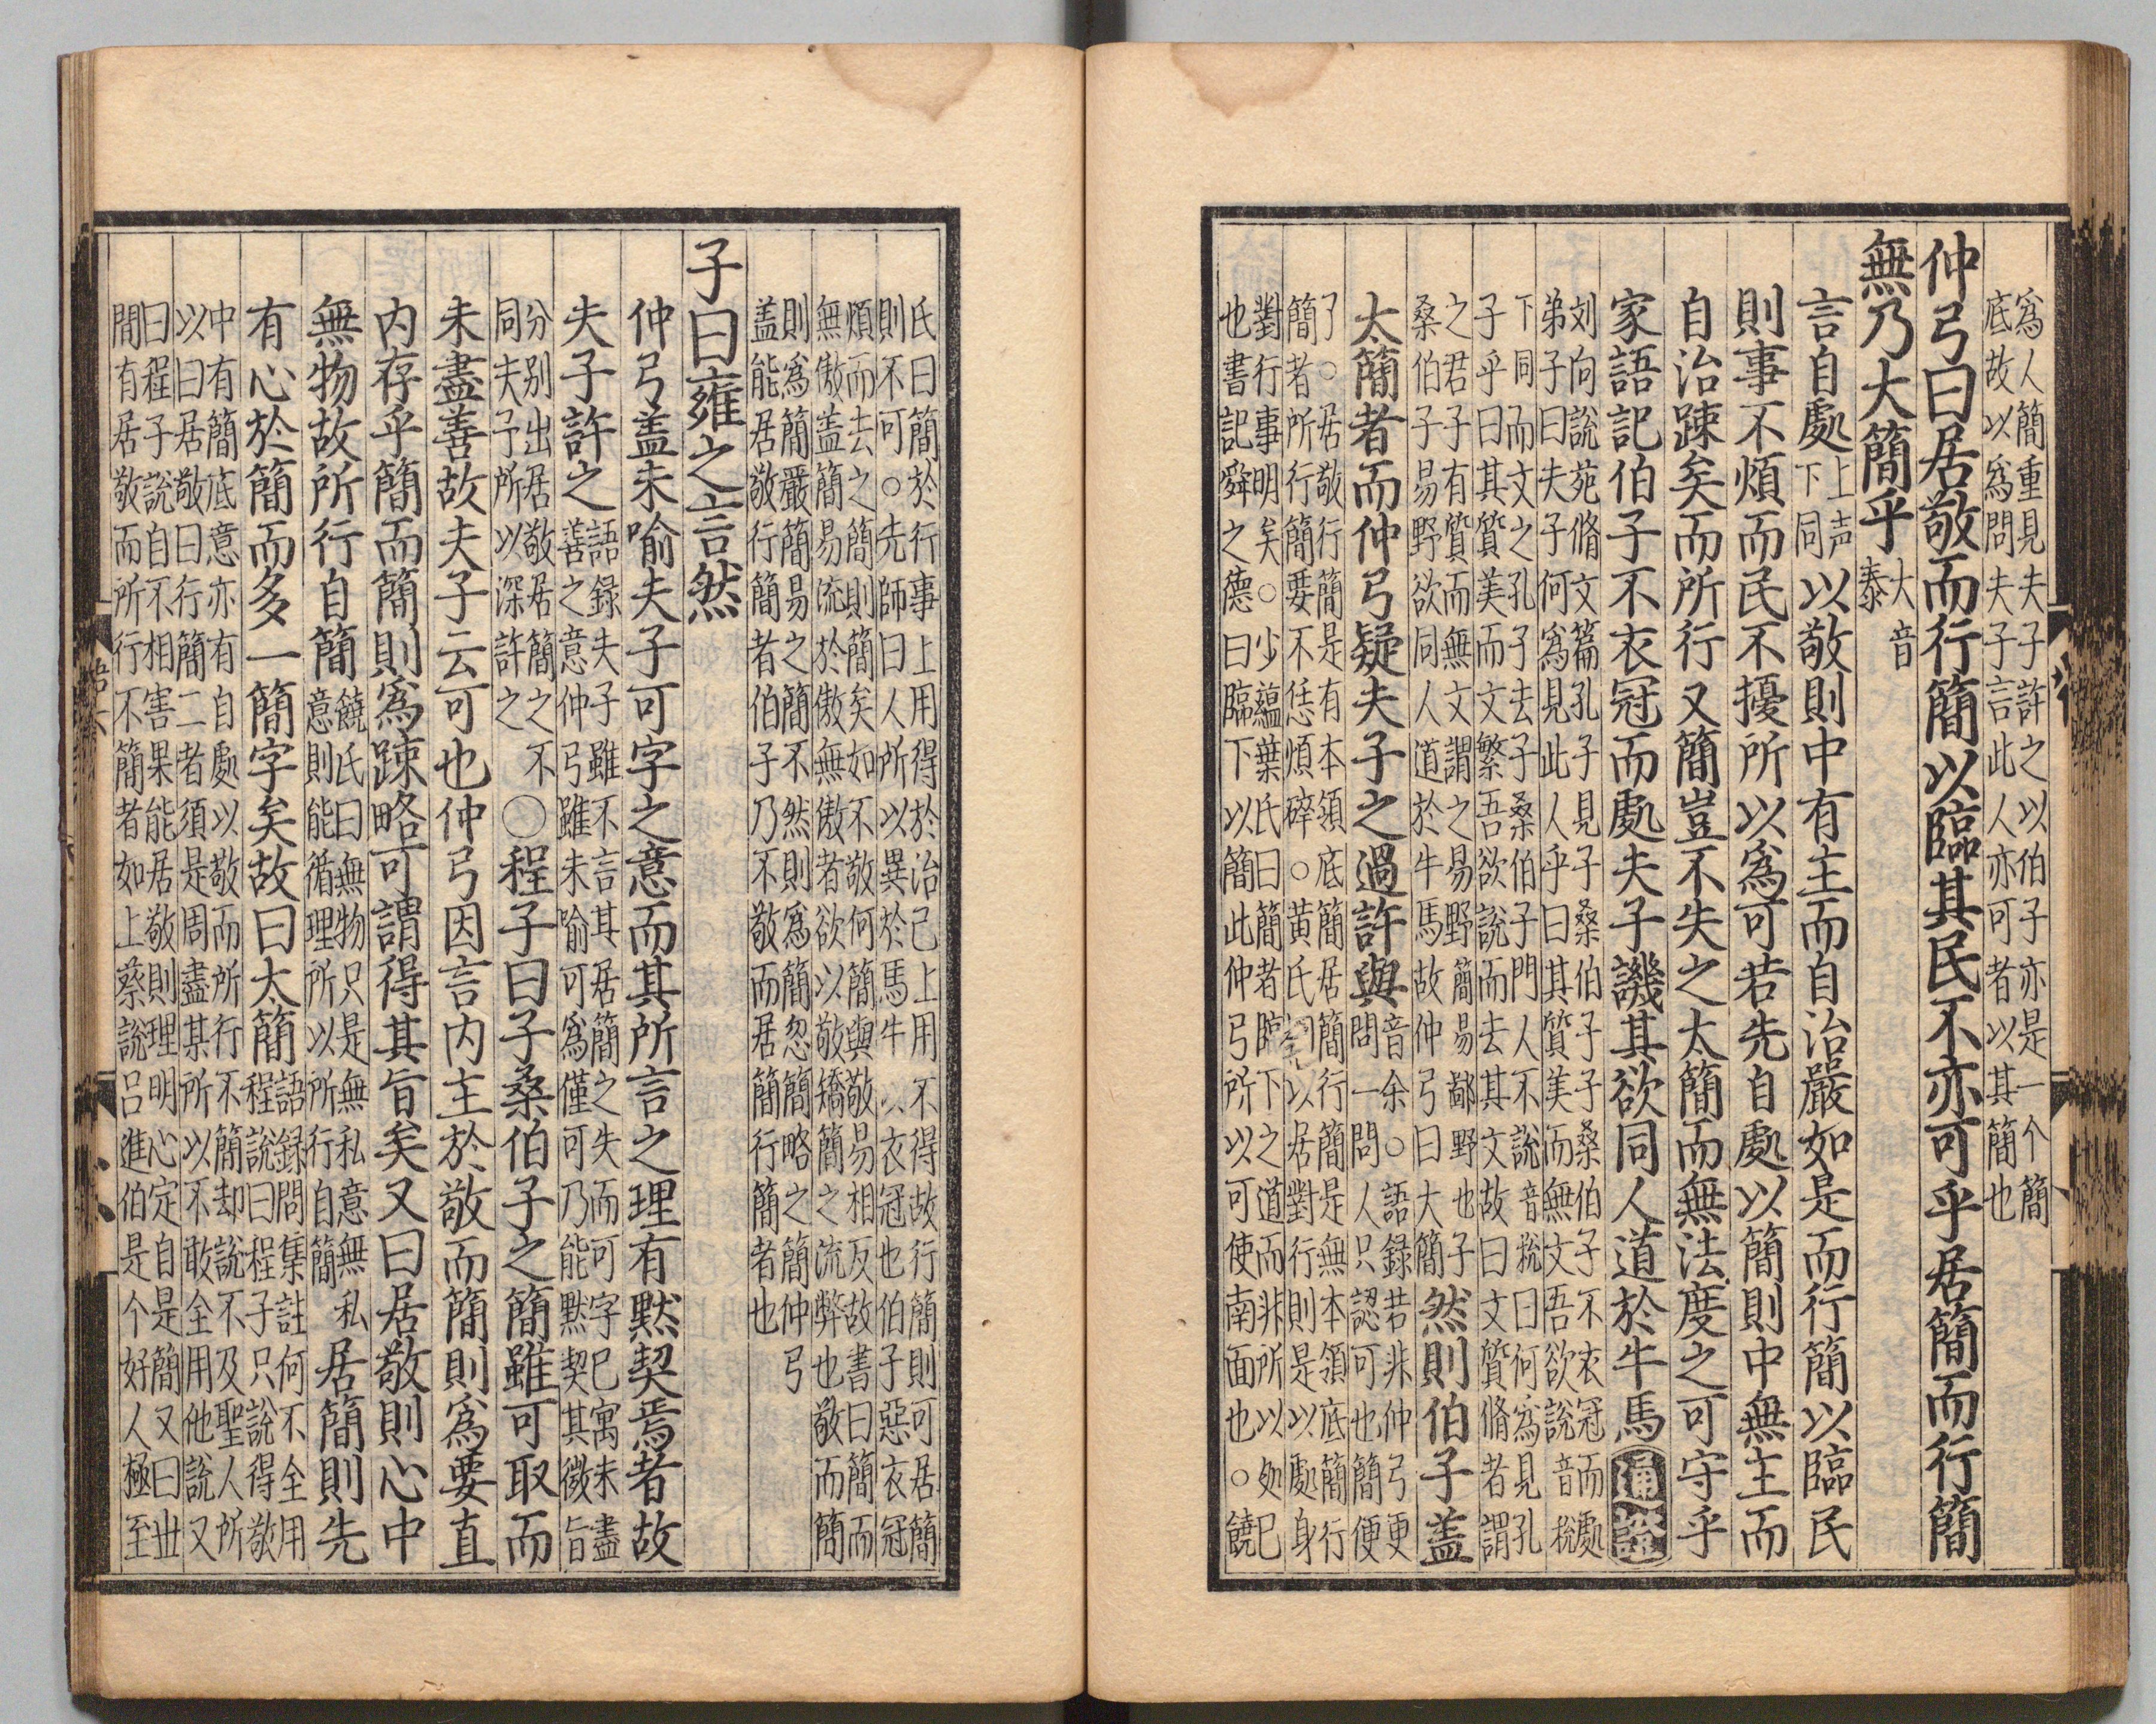 爲人簡重見夫子許之以伯子亦是一个簡
底故以爲問夫子言此人亦可者以其簡也
仲弓曰居敬而行簡以臨其民不亦可乎居簡而行簡
無乃大簡乎大音泰
言自處上声下同以敬則中有主而自治嚴如是而行簡以臨民
則事不煩而民不擾所以爲可若先自處以簡則中無主而
自治踈矣而所行又簡豈不失之太簡而無法度之可守乎
家語記伯子不衣冠而處夫子譏其欲同人道於牛馬通證
刘向說苑脩文篇孔子見子桑伯子子桑伯子不衣冠而處
弟子曰夫子何爲見此人乎曰其質美而無文吾欲說音稅
下同而文之孔子去子桑伯子門人不說音稅曰何爲見孔
子乎曰其質美而文繁吾欲說而去其文故曰文質脩者謂
之君子有質而無文謂之易野簡易鄙野也子
桑伯子易野欲同人道於牛馬故仲弓曰大簡然則伯子盖
太簡者而仲弓疑夫子之過許與音余○語録若非仲弓更
問一問人只認可也簡便
了○居敬行簡是有本領底簡居簡行簡是無本領底簡行
簡者所行簡要不恁煩碎○黄氏以居對行則是以處身
對行事明矣○少蘊葉氏曰簡者臨下之道而非所以処已
也書記舜之德曰臨下以簡此仲弓所以可使南面也○饒
氏曰簡於行事上用得於治己上用不得故行簡則可居簡
則不可○先師曰人所以異於馬牛以衣冠也伯子惡衣冠
煩而去之簡則簡矣如不敬何簡與敬易相反故書曰簡而
無傲盖簡易流於傲無傲者欲以敬矯簡之流弊也敬而簡
則爲簡嚴簡易之簡不然則爲簡忽簡略之簡仲弓
盖能居敬行簡者伯子乃不敬而居簡行簡者也
子曰雍之言然
仲弓盖未喻夫子可字之意而其所言之理有默契焉者故
夫子許之語録夫子雖不言其居簡之失而可字已寓未盡
善之意仲弓雖未喻可爲僅可乃能默契其微旨
分別出居敬居簡之不
同夫子所以深許之○程子曰子桑伯子之簡雖可取而
未盡善故夫子云可也仲弓因言内主於敬而簡則爲要直
内存乎簡而簡則爲踈略可謂得其旨矣又曰居敬則心中
無物故所行自簡饒氏曰無物只是無私意無私
意則能循理所以所行自簡居簡則先
有心於簡而多一簡字矣故曰太簡語録問集註何不全用
程說曰程子只說得敬
中有簡底意亦有自處以敬而所行不簡却說不及聖人所
以曰居敬曰行簡二者須是周盡某所以不敢全用他說又
曰程子說自不相害果能居敬則理明心定自是簡又曰世
間有居敬而所行不簡者如上蔡說吕進伯是个好人極至